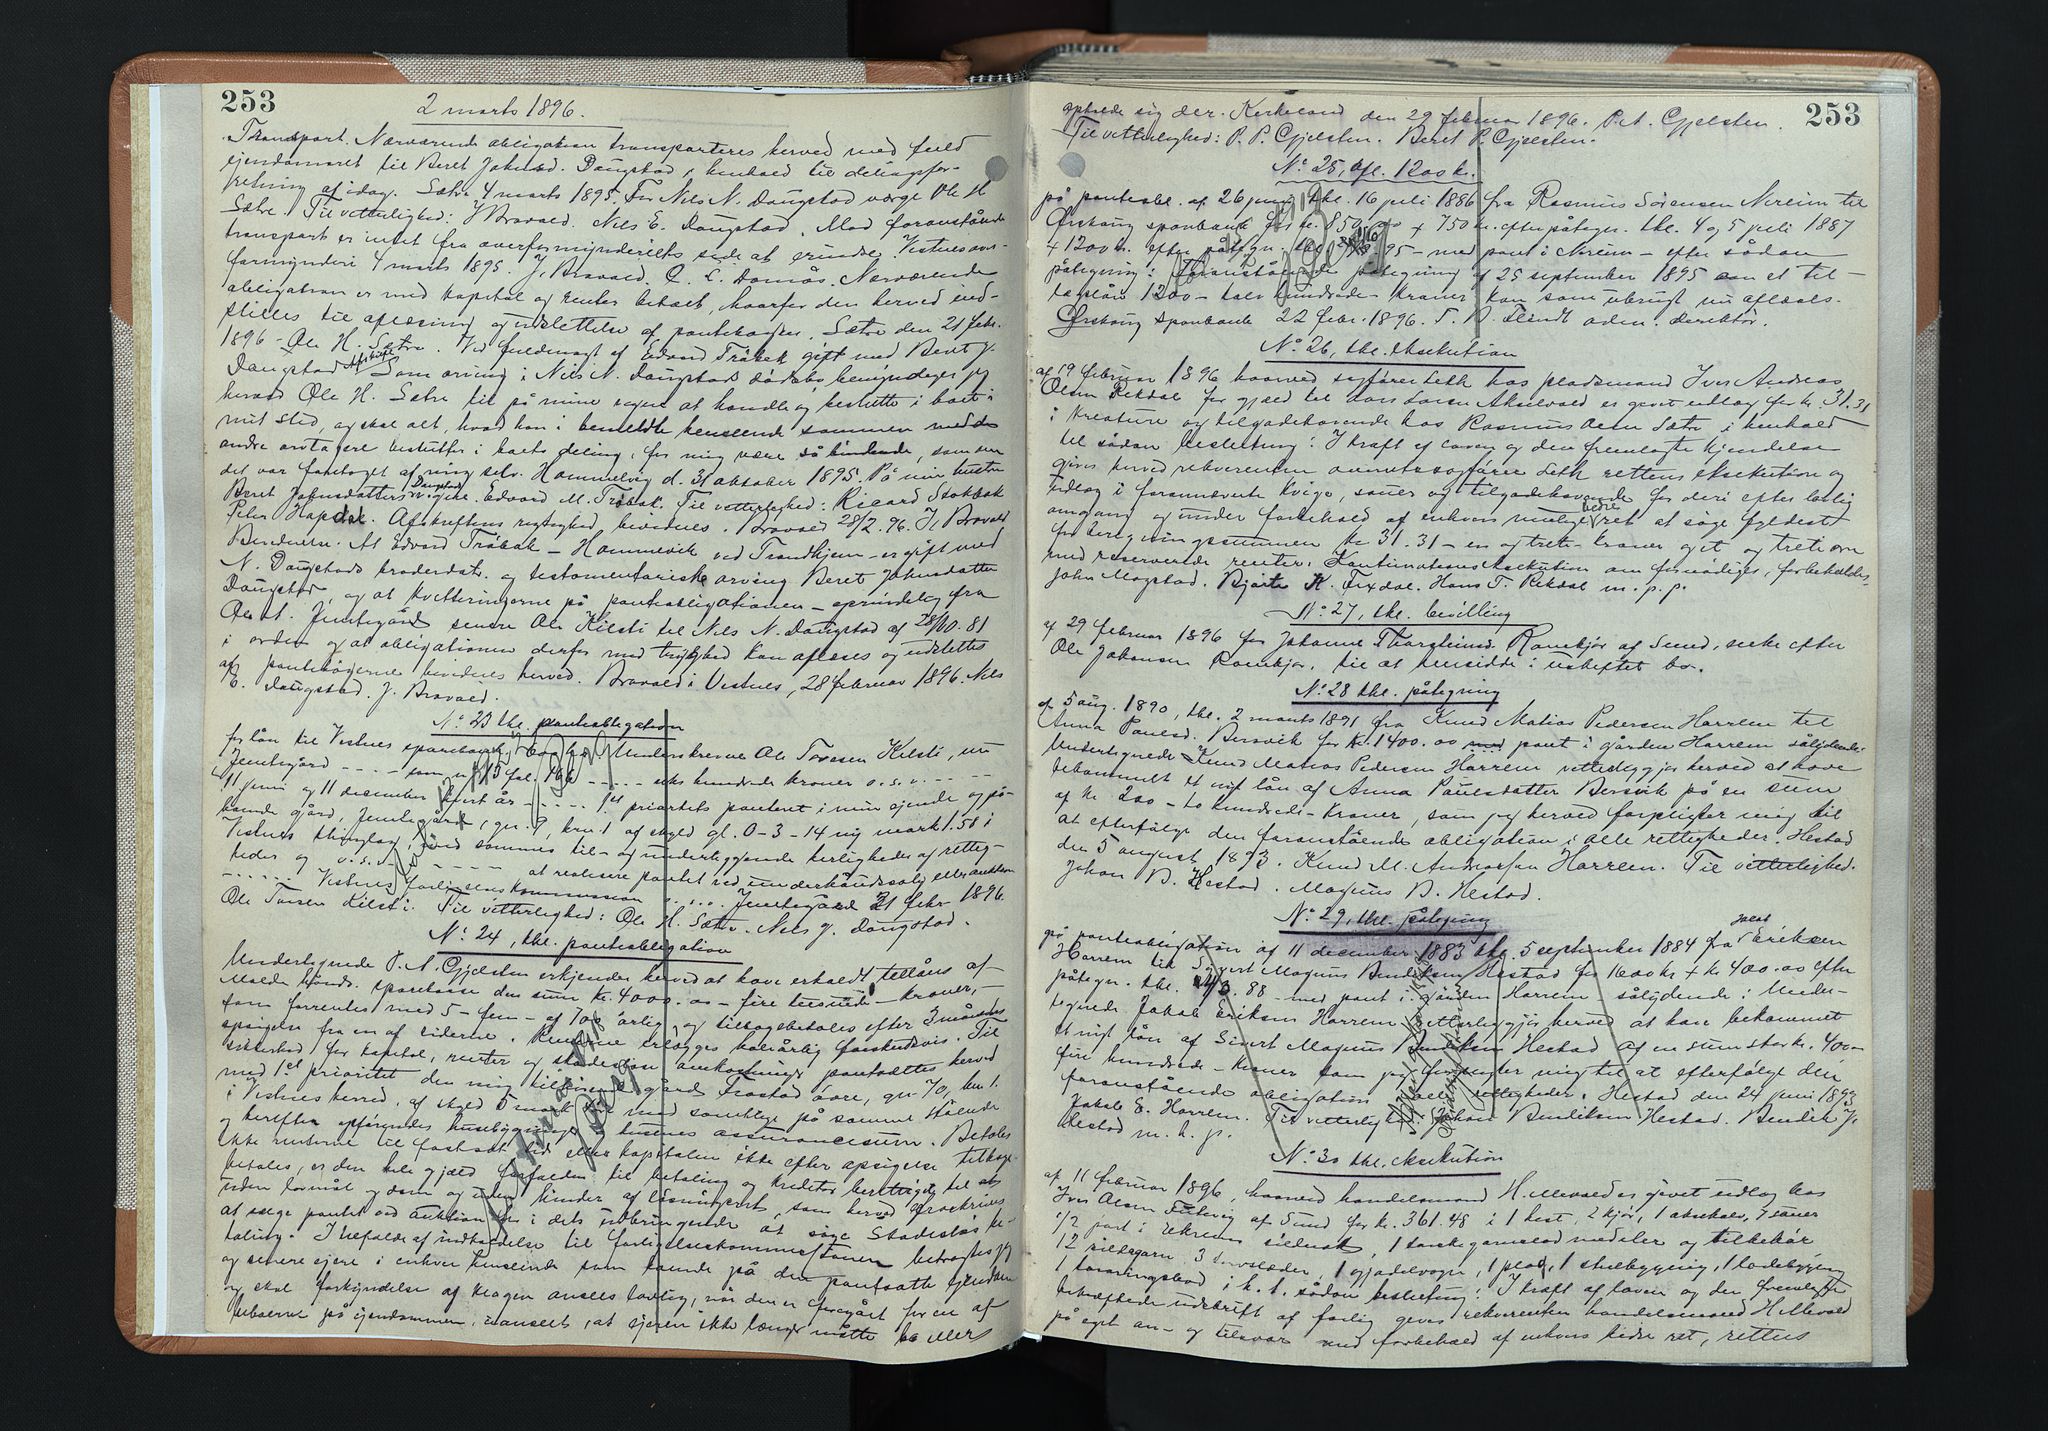 253
2 marts 1896.
Transport. Nærværende obligation transporteres herved med fuld
ejendomsret til Beret Johnsd. Daugstad, i henhold til delingsfor-
retning af idag. Sætre 4 marts 1895. For Nils N. Daugstad værge Ole H
Sætre. Til vitterlighed: J Bravald. Nils E. Daugstad. Mod foranstående
transport er intet fra overformynderiets side at erindre. Vestnes over-
formynderi 4 marts 1895. J. Bravald. O. L. Domås. Nærværende
obligation er med kapital og renter betalt, hvorfor den herved ind-
stilles til aflæsning og udslettelse af pantebogen. Sætre den 21 febr.
1896 - Ole H. Sætre. Ved fuldmagt af Edvard Tråbak gift med Beret J.
Daugstad. Afskrift Som arving i Nils N. Daugstads dødsbo bemyndiger jeg
herved Ole H. Sætre til på mine vegne at handle og beslutte i boet i
mit sted, og skal alt, hvad han i bemeldte henseende sammen med de
andre arvtagere beslutter i boets deling, for mig være så bindende, som om
det var foretaget af mig selv. Hommelvig d. 31 oktober 1895. På min hustru
Beret Johnsdatter Daugstads vegne. Edvard M. Tråbak. Til vitterlighed: Ricard Stokbak
Peter Hapdal. Afskriftens rigtighed bevidnes. Bravald 28/2. 96. J. Bravald
Bevidnes. At Edvard Tråbak - Hommelvik ved Trondhjem - er gift med
N. Daugstads broderdatr. og testamentariske arving Beret Johnsdatter
Daugstad, og at kvitteringerne på panteobligationen - oprindelig fra
Ole A. Jemtegård senere Ole Kilsti til Nils N. Daugstad af 28/10. 81
i orden og at obligationen derfor med tryghed kan aflæses og udslettes
af pantebøgerne bevidnes herved. Bravald i Vestnes, 28 februar 1896. Nils
E. Daugstad. J. Bravald.
No. 23 thl. panteobligation
for lån til Vestnes sparebank. Undertegnede Ole Toresen Kilsti, nu
Jemtegård - - - - som - - - - seks hundrede kroner o.s.v. - - - -
11 juni og 11 december hvert år - - - - 1st prioritets panteret i min ejende og på-
boende gård, Jemtegård, gn. 9, brn. 1 af skyld gl. 0-3-14 ny mark 1.58 i
Vestnes thinglag, med sammes til- og underliggende herligheder af rettig-
heder og o.s.v. - - - - at realisere pantet ved underhåndssalg eller auktion
- - - - Vestnes forligelseskommission - - - - Jemtegård 21 febr 1896.
Ole Torsen Kilsti. Til vitterlighed: Ole H. Sætre. Nils J. Daugstad.
No. 24, thl. panteobligation
Undertegnede P. A. Gjelsten erkjender herved at have erholdt tillåns af
Molde hånds. sparekasse den sum kr. 4000.00 - fire tusinde - kroner, -
som forrentes med 5 - fem - af 100 årlig, og tilbagebetales efter 3 måneders
opsigelse fra en af siderne. Renterne erlægges halvårlig forskudsvis. Til
sikkerhed for kapital, renter og skadesløs omkostninger pantsættes herved
med 1st prioritet den mig tilhørende gård Frostad øvre, gn. 70, bn 1.
i Vestnes herred, af skyld 5 mark med samtlige på samme stående
og herefter opførendes husebygninger husenes assurancesum. Betales
ikke renterne til fastsat tid eller kapitalen ikke efter opsigelse tilbage-
betales, er den hele gjæld forfalden til betaling og kreditor berettiget til at
uden lovmål og dom og uden hinder af løsningsret, som herved proskriberes
at søge pantet ved auktion for i dets udbringende at søge skadesløs be-
taling. I tilfælde af indkaldelse til forligelseskommissionen betragtes jeg
og senere ejere i enhver henseende som boende på den pantsatte ejendom
og skal forkyndelse af klagen ansees lovlig, når den er foregået for en af
beboerne på ejendommen, uanseet, at ejeren ikke længer måtte bo eller
253
opholde sig der. Kirkeland den 29 februar 1896. P. A. Gjelsten.
Til vitterlighed: P. P. Gjelsten. Beret P. Gjelsten.
No. 25, afl. 1200 k.
på panteobl. af 26 juni thl. 16 juli 1886 fra Rasmus Sørensen Nereim til
Ørskoug sparebank for kr. 850.00 + 750 kr. efter påtegn. thl. 4 og 5 juli 1887
+ 1200 kr. efter påtegn. thl. 95 - med pant i Nereim - efter sådan
påtegning: Foranstående påtegning af 25 september 1895 om et til-
lægslån 1200 - tolv hundrede - kroner kan som ubrugt nu aflæses.
Ørskoug sparebank 22 febr. 1896. T. B. Flindt adm. direktør.
No. 26, thl. eksekution
af 19 februar 1896 hvorved sagfører Leth hos pladsmand Iver Andreas
Olsen Rekdal for gjæld til Lars Larsen Akselvold er givet udlæg for kr. 31.31
i kreature og tilgodehavende hos Rasmus Olsen Sætre i henhold
til sådan beslutning: I kraft af loven og den fremlagte kjendelse
gives herved rekvirenten overretssagfører Leth rettens eksekution og
udlæg i forannævnte kvige, sauer og tilgodehavende for deri efter lovlig
omgang og under forbehold af enhvers mulige bedre ret at søge fyldest
for beregningssummen kr 31.31 - en og treti - kroner og et og treti øre
med reserverede renter. Kontinuationseksekution om fornødiges, forbeholdes.
John Mogstad. Bjarte K. Fixdal. Hans T. Rekdal m. p. p.
No. 27, thl. bevilling
af 29 februar 1896 for Johanne Thorsteinsd. Ramkjør af Sund, enke efter
Ole Johansen Ramkjør, til at hensidde i uskiftet bo.
No. 28 thl. påtegning
af 5 aug. 1890, thl. 2 marts 1891 fra Knud Matias Pedersen Harrem til
Anna Paulsd. Bersvik for kr. 1400.00 med pant i gården Harrem sålydende:
Undertegnede Knud Matias Pedersen Harrem vitterliggjør herved at have
bekommet et nyt lån af Anna Paulsdatter Bersvik på en sum
af kr 200 - to hundrede - kroner, som jeg herved forpligter mig til
at efterfølge den foranstående obligation i alle rettigheder. Hestad
den 5 august 1893. Knud M. Andreassen Harrem. Til vitterlighed.
Johan B. Hestad. Magnus B. Hestad.
No. 29, thl. påtegning
på panteobligation af 11 december 1883 thl. 5 september 1884 fra Jakob Eriksen
Harrem til Sivert Magnus Bendiksen Hestad for 1600 kr + kr 400.00 efter
påtegn. thl. 88 - med pant i gården Harrem - sålydende: Under-
tegnede Jakob Eriksen Harrem vitterliggjør herved at have bekommet
et nyt lån af Sivert Magnus Bendiksen Hestad af en sum stor k. 400 -
fire hundrede - kroner som jeg forpligter mig til at efterfølge den
foranstående obligation i alle rettigheder. Hestad den 24 juni 1893
Jakob E. Harrem. Til vitterlighed: Johan Bendiksen Hestad. Bendik J.
Hestad m. h. p.
No. 30 thl. eksekution
af 11 februar 1896, hvorved handelsmand H. Mevold er givet udlæg hos
Iver Olsen af Sund for kr. 361.48 i 1 hest, 2 kjør, 1 oksekalv, 7 sauer
1/2 part i sildnot, 1 torskegarnslod med iler og tilbehør
12 sildegarn 3 1 gjødelvogn, 1 plog, 1 stuebygning, 1 ladebygning
1 i h. t. sådan beslutning: I kraft af loven og den fremlagte
bekræftede udskrift af forlig gives rekvirenten handelsmand H. Mevold
på eget an- og tilsvar med forbehold af enhvers bedre ret, rettens